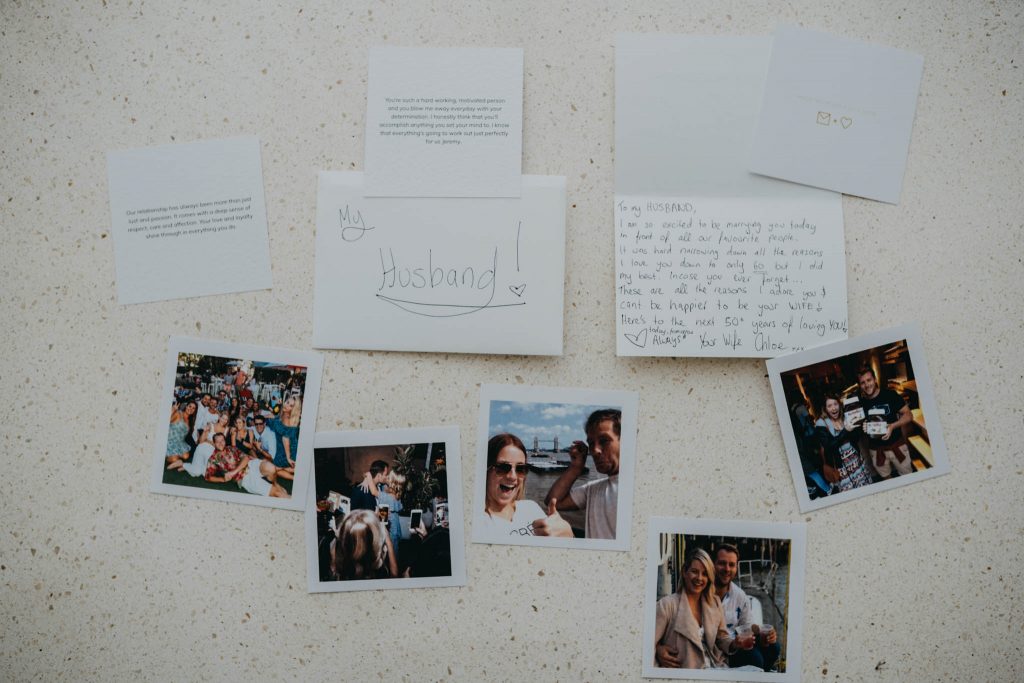 You're such a hard working, motivated person
and you blow me away everyday with your
determination. I honestly think that you'll
accomplish anything you set your mind to. I know
that everything's going to work out just perfectly
for us Jeremy.
Our relationship has always been more than just
lust and passion. It comes with a deep sense of
respect, care and affection. Your love and loyalty
shine through in everything you do.
My
Husband!
To my HUSBAND,
I am so excited to be marrying you today
in front of all our favourite people.
It was hard narrowing down all the reasons
I love you down to only 60 but I did
my best. Incase you ever forget...
These are all the reasons I adore you &
cant be happier to be your WIFE!
Here's to the next 50+ years of loving YOU!
today, tomorrow
Always Your Wife Chloe xxx